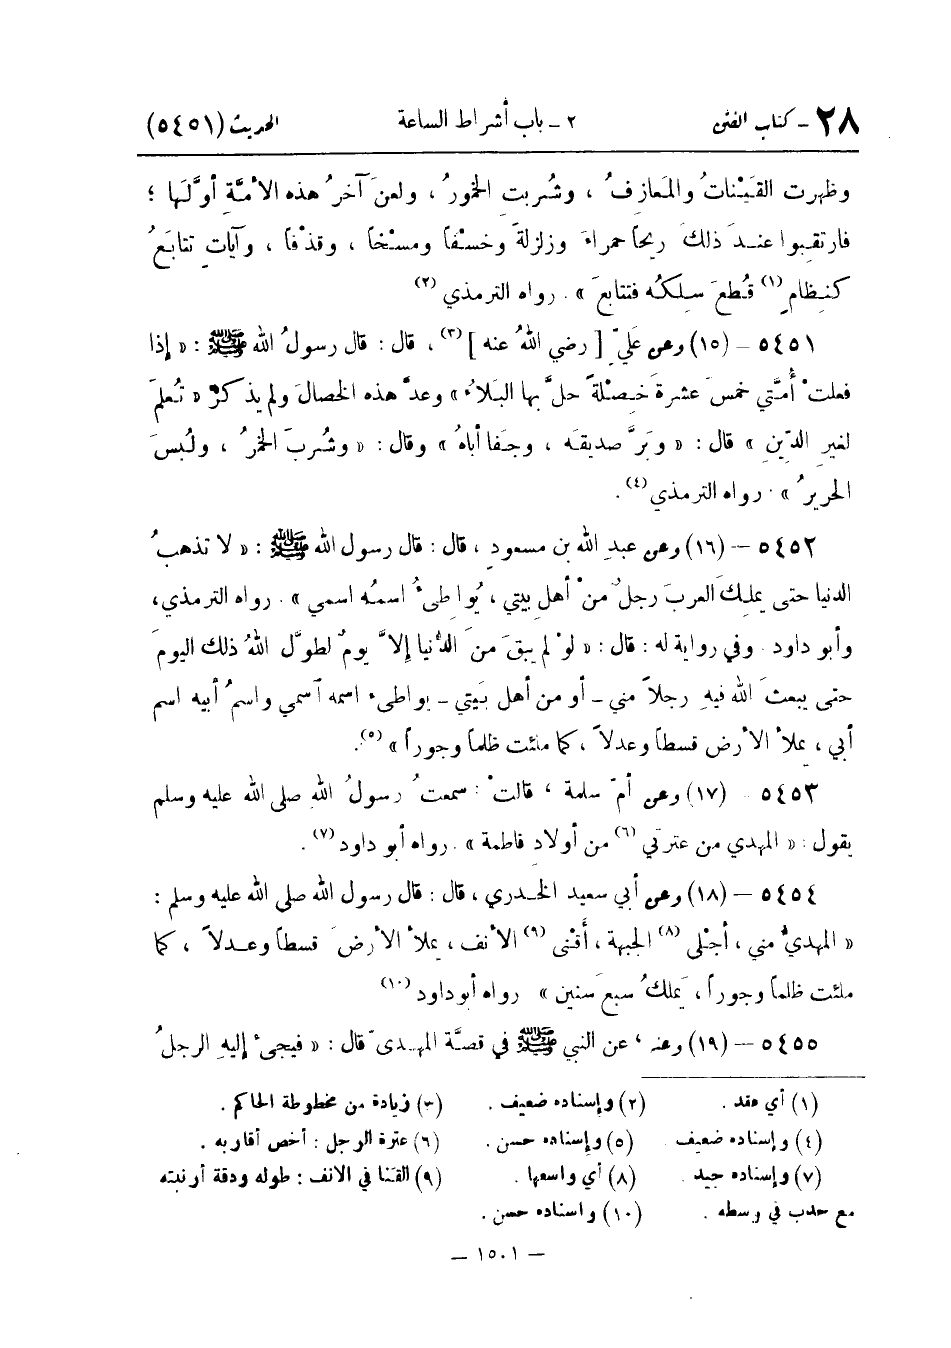 ٢٨ - كتاب الفتن ٢ - باب أشراط الساعة الحديث (٥٤٥١)
وظهرت القَيْناتُ والمَعازِفُ ، وشُربتِ الخمورُ ، ولعنَ آخرُ هذه الأمَّةِ أوَّلَها ؛
فارتقبوا عندَ ذلكَ ريحاً حمراءَ وزلزلةً وخسْفاً ومسْخاً ، وقذْفاً ، وآياتٍ تتابَعُ
كنِظامٍ (١) قُطعَ سِلكُه فتتابعَ » . رواه الترمذي (٢)
٥٤٥١ - (١٥) وعن عَليٍّ [ رضي اللهُ عنه ] (٣) ، قال : قال رسولُ الله ﷺ : « إذا
فعلتْ أُمَّتي خمسَ عشرةَ خِصلةً حلَّ بها البَلاءُ » وعدَّ هذه الخصالَ ولم يذكرْ « تُعلمَ
لغيرِ الدِّينِ » قال : « وبَرَّ صديقَه ، وجَفا أباهُ » وقال : « وشُربَ الخمرُ ، ولُبسَ
الحريرُ » . رواه الترمذي (٤) .
٥٤٥٢ - (١٦) وعن عبدِ الله بن مسعودٍ ، قال : قال رسول الله ﷺ : « لا تذهبُ
الدنيا حتى يملِكَ العربَ رجلٌ منْ أهل بيتي ، يُواطىءُ اسمُه اسمي » . رواه الترمذي ،
وأبو داود . وفي رواية له : قال : « لوْ لم يبقَ منَ الدُّنيا إلاَّ يومٌ لطوَّل اللهُ ذلك اليومَ
حتى يبعثَ اللهُ فيهِ رجلاً مني - أو من أهل بَيتي - يواطىء اسمه آسمي واسمُ أبيه اسم
أبي ، يملأُ الأرض قسطاً وعدلاً ، كما ملئت ظلماً وجوراً » (٥) .
٥٤٥٣ - (١٧) وعن أمّ سلمة ، قالتْ : سمعتُ رسولُ اللهِ صلى الله عليه وسلم
يقول : « المهدي من عترتي (٦) من أولادِ فاطمة » . رواه أبو داود (٧) .
٥٤٥٤ - (١٨) وعن أبي سعيد الخدري ، قال : قال رسول الله صلى الله عليه وسلم :
« المهديُّ مني ، أجْلى (٨) الجبهة ، أَقْنى (٩) الأنف ، يملأُ الأرضَ قسطاً وعدلاً ، كما
ملئت ظلماً وجوراً ، يَملكُ سبعَ سنين » رواه أبو داود (١٠)
٥٤٥٥ - (١٩) وعنه ، عن النبي ﷺ في قصَّة المهدىّ قال : « فيجيءُ إليهِ الرجلُ
(١) أي عقد . (٢) وإسناده ضعيف . (٣) زيادة من مخطوطة الحاكم .
(٤) وإسناده ضعيف . (٥) وإسناده حسن . (٦) عترة الرجل : أخص أقاربه .
(٧) وإسناده جيد . (٨) أي واسعها . (٩) القنا في الانف : طوله ودقة أرنبته
مع حدب في وسطه . (١٠) واسناده حسن .
- ١٥٠١ -